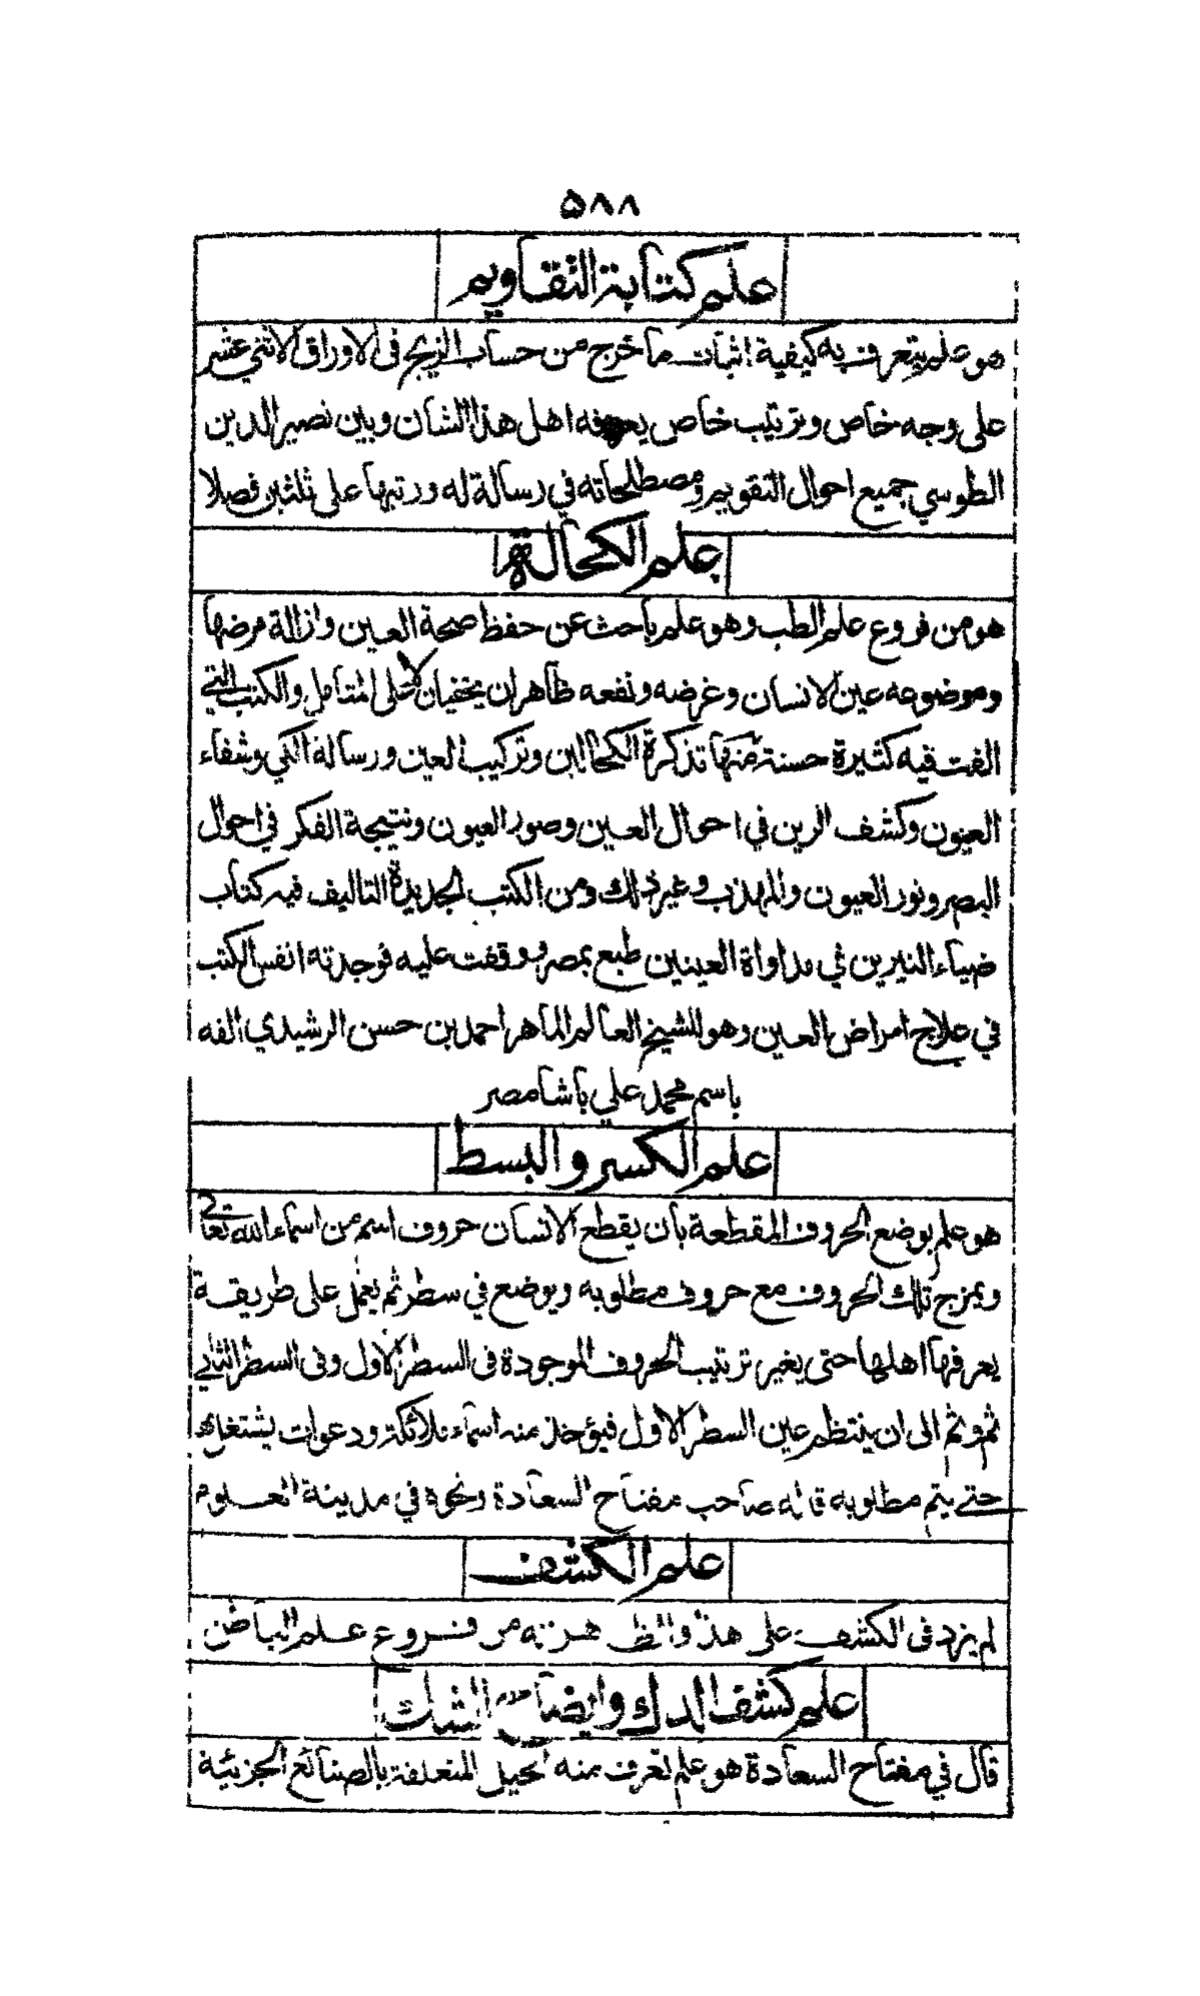 ۵۸۸
علم كتابة التقاويم
هو علم يتعرف به كيفية اثبات ما خرج من حساب الزيج فى الاوراق الاثني عشر
على وجه خاص وترتيب خاص يعرفه اهل هذا الشان وبين نصير الدين
الطوسي جميع احوال التقويم ومصطلحاته في رسالة له ورتبها على ثلثين فصلا
علم الكحالة
هو من فروع علم الطب وهو علم باحث عن حفظ صحة العين وازالة مرضها
وموضوعه عين الانسان وغرضه ونفعه ظاهران لا يخفيان على المتامل والكتب التي
الفت فيه كثيرة حسنة منها تذكرة الكحالين وتركيب العين ورسالة الكي وشفاء
العيون وكشف الرين في احوال العين وصور العيون ونتيجة الفكر في احوال
البصر ونور العيون والمهذب وغير ذلك ومن الكتب الجديدة التاليف فيه كتاب
ضياء النيرين في مداواة العينين طبع بمصر ووقفت عليه فوجدته انفس الكتب
في علاج امراض العين وهو للشيخ العالم الماهر احمد بن حسن الرشيدي الفه
باسم محمد علي باشا مصر
علم الكسر والبسط
هو علم بوضع الحروف المقطعة بأن يقطع الانسان حروف اسم من اسماء الله تعالى
ويمزج تلك الحروف مع حروف مطلوبه ويوضع في سطر ثم يعمل على طريقة
يعرفها اهلها حتى يغير ترتيب الحروف الموجودة فى السطر الاول وفى السطر الثاني
ثم وثم الى ان ينتظم عين السطر الاول فيؤخذ منه اسماء ملائكة ودعوات يشتغل بها
حتى يتم مطلوبه قاله صاحب مفتاح السعادة ونحوه في مدينة العلوم
علم الكشف
لم يزد فى الكشف على هذا والظ هر انه من فروع علم الباطن
علم كشف الدك وايضاح الشك
قال في مفتاح السعادة هو علم تعرف منه الحيل المتعلقة بالصنائع الجزئية